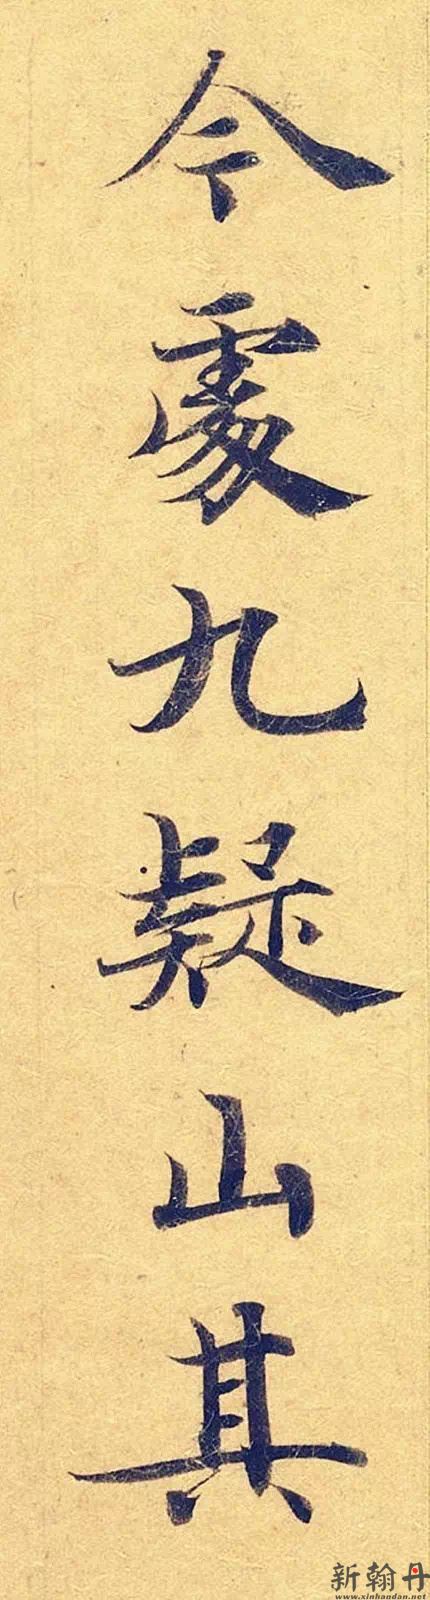 今處九疑山其
新翰丹
www.xinhandan.net